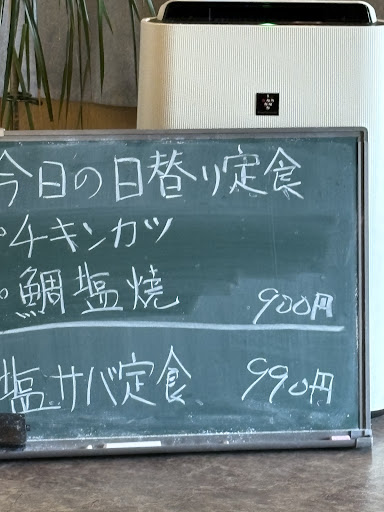 今日の日替り定食
・チキンカツ
・鯛塩焼 900円
塩サバ定食 990円